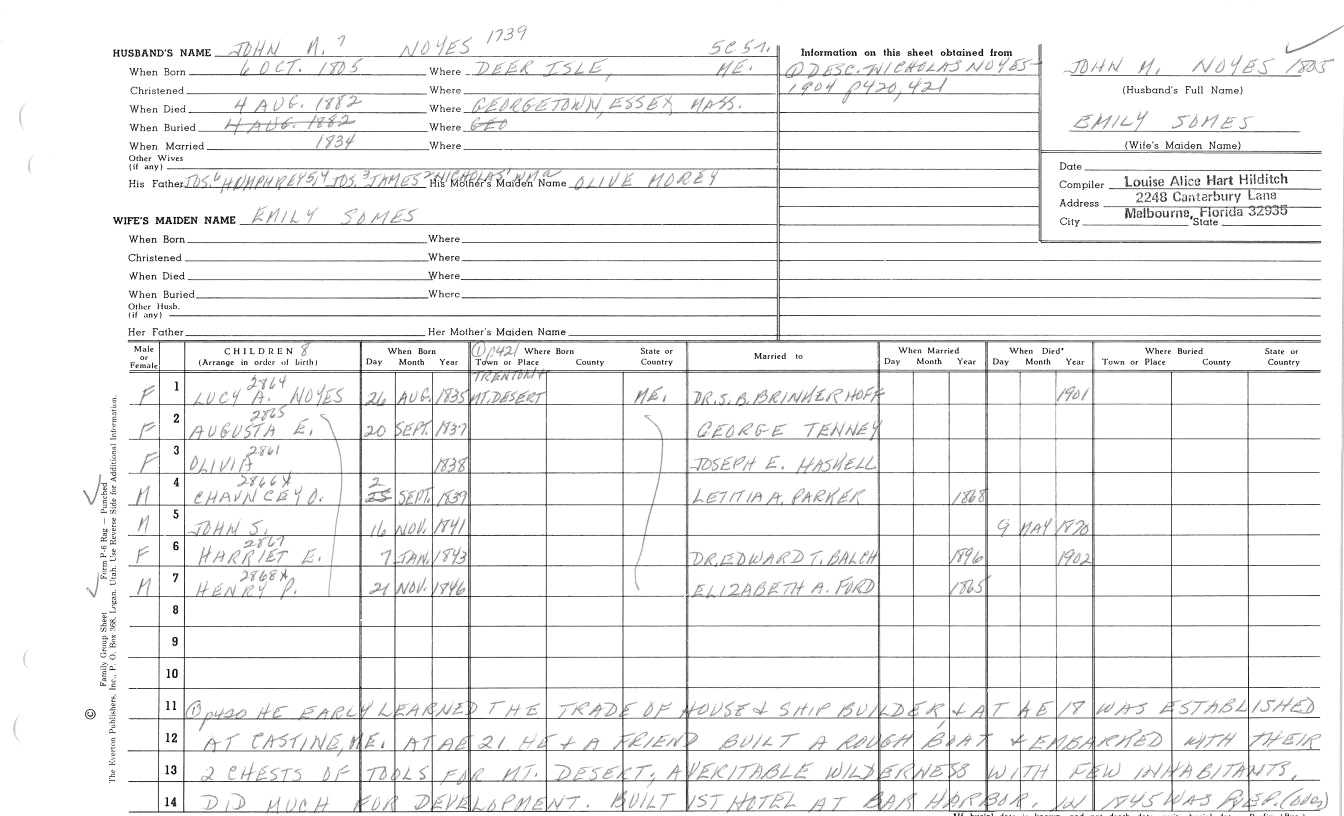 HUSBAND'S NAME JOHN M. 7 NOYES 1739 SC 57.
When Born 6 OCT. 1805 Where DEER ISLE, ME.
Christened Where
When Died 4 AUG. 1882 Where GEORGETOWN, ESSEX, MASS.
When Buried 4 AUG. 1882 Where GEO
When Married 1834 Where
Other Wives
(if any)
His Father JOS.6 HUMPHREY5,4 JOS.3 JAMES2 NICHOLAS1 WM a His Mother's Maiden Name OLIVE MOREY
WIFE'S MAIDEN NAME EMILY SOMES
When Born Where
Christened Where
When Died Where
When Buried Where
Other Husb.
(if any)
Her Father Her Mother's Maiden Name
Information on this sheet obtained from
① DESC. NICHOLAS NOYES-
1904 p420, 421
JOHN M. NOYES 1805
(Husband's Full Name)
EMILY SOMES
(Wife's Maiden Name)
Date
Compiler Louise Alice Hart Hilditch
Address 2248 Canterbury Lane
Melbourne, Florida 32935
City State
Male or Female CHILDREN 8 (Arrange in order of birth) When Born Day Month Year ① p421 Where Born Town or Place County State or Country Married to When Married Day Month Year When Died* Day Month Year Where Buried Town or Place County State or Country
F 1 2864 LUCY A. NOYES 26 AUG. 1835 TRENTON & MT. DESERT ME. DR. S. B. BRINKERHOFF 1901
F 2 2865 AUGUSTA E. 20 SEPT. 1837 GEORGE TENNEY
F 3 2861 OLIVIA 1838 JOSEPH E. HASKELL
M 4 2866X CHAUNCEY O. 2 25 SEPT. 1839 LETITIA A. PARKER 1868
M 5 JOHN S. 16 NOV. 1841 9 MAY 1870
F 6 2867 HARRIET E. 7 JAN. 1843 DR. EDWARD T. BALCH 1896 1902
M 7 2868X HENRY P. 21 NOV. 1846 ELIZABETH A. FORD 1865
8
9
10
11 ① p420 HE EARLY LEARNED THE TRADE OF HOUSE & SHIP BUILDER, & AT AE 17 WAS ESTABLISHED
12 AT CASTINE, ME. AT AE 21 HE & A FRIEND BUILT A ROUGH BOAT & EMBARKED WITH THEIR
13 2 CHESTS OF TOOLS FOR MT. DESERT, A VERITABLE WILDERNESS WITH FEW INHABITANTS,
14 DID MUCH FOR DEVELOPMENT. BUILT 1ST HOTEL AT BAR HARBOR. IN 1845 WAS (over)
© The Everton Publishers, Inc., P. O. Box 368, Logan, Utah. Use Reverse Side for Additional Information.
Family Group Sheet Form P-6 Rag — Punched